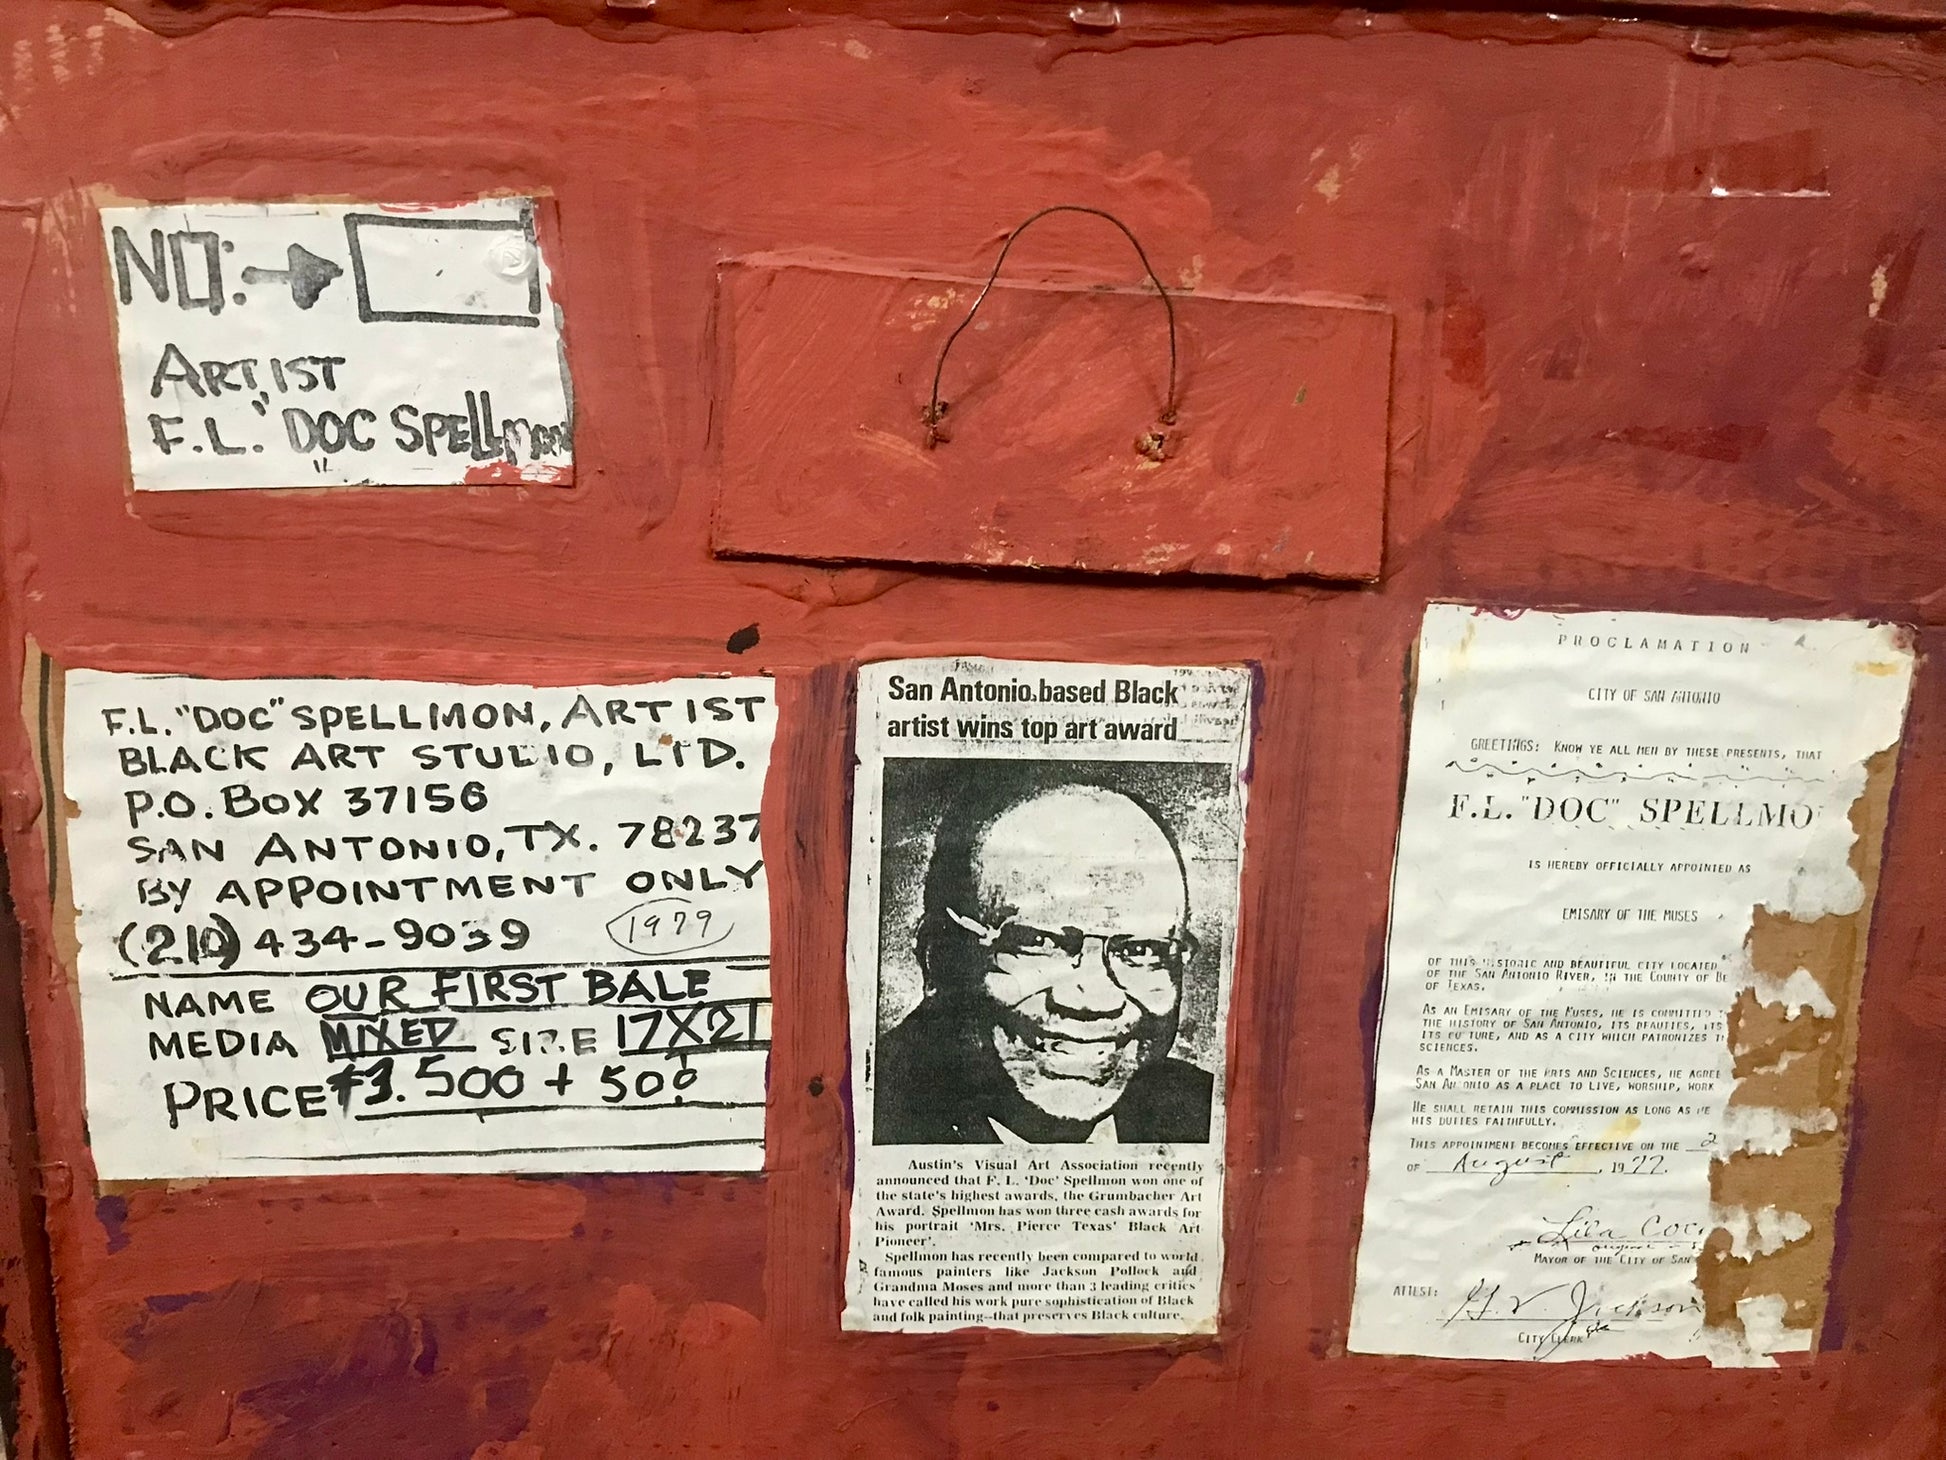 NO:
ARTIST
F.L. "DOC SPELLMON
F.L. "DOC" SPELLMON, ARTIST
BLACK ART STUDIO, LTD.
P.O. BOX 37156
SAN ANTONIO, TX. 78237
BY APPOINTMENT ONLY
(210) 434-9039 1979
NAME OUR FIRST BALE
MEDIA MIXED SIZE 17X21
PRICE $3.500 + 500
San Antonio.based Black
artist wins top art award
Austin's Visual Art Association recently
announced that F. L. 'Doc' Spellmon won one of
the state's highest awards, the Grumbacher Art
Award. Spellmon has won three cash awards for
his portrait 'Mrs. Pierce Texas' Black Art
Pioneer'.
Spellmon has recently been compared to world
famous painters like Jackson Pollock and
Grandma Moses and more than 3 leading critics
have called his work pure sophistication of Black
and folk painting--that preserves Black culture.
PROCLAMATION
CITY OF SAN ANTONIO
GREETINGS: KNOW YE ALL MEN BY THESE PRESENTS, THAT
F.L. "DOC" SPELLMO
IS HEREBY OFFICIALLY APPOINTED AS
EMISARY OF THE MUSES
OF THIS HISTORIC AND BEAUTIFUL CITY LOCATED
OF THE SAN ANTONIO RIVER, IN THE COUNTY OF BE
OF TEXAS.
AS AN EMISARY OF THE MUSES, HE IS COMMITTED
THE HISTORY OF SAN ANTONIO, ITS BEAUTIES, ITS
ITS FUTURE, AND AS A CITY WHICH PATRONIZES T
SCIENCES.
AS A MASTER OF THE ARTS AND SCIENCES, HE AGREE
SAN ANTONIO AS A PLACE TO LIVE, WORSHIP, WORK
HE SHALL RETAIN THIS COMMISSION AS LONG AS HE
HIS DUTIES FAITHFULLY.
THIS APPOINTMENT BECOMES EFFECTIVE ON THE 2
OF August, 1977.
Lila Coc
MAYOR OF THE CITY OF SAN
ATTEST: G. V. Jackson
CITY CLERK